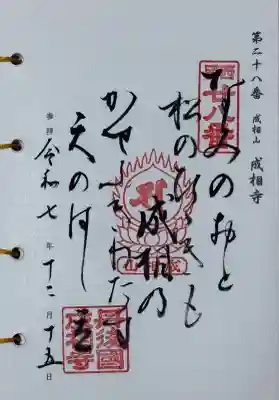 第二十八番 成相山 成相寺
西国
廿八番
なみのおと
松のひゞきも
成相の
かぜふきわたす
天のはし立
成相山
丹後國
成相寺
参拝 令和七年十二月十五日